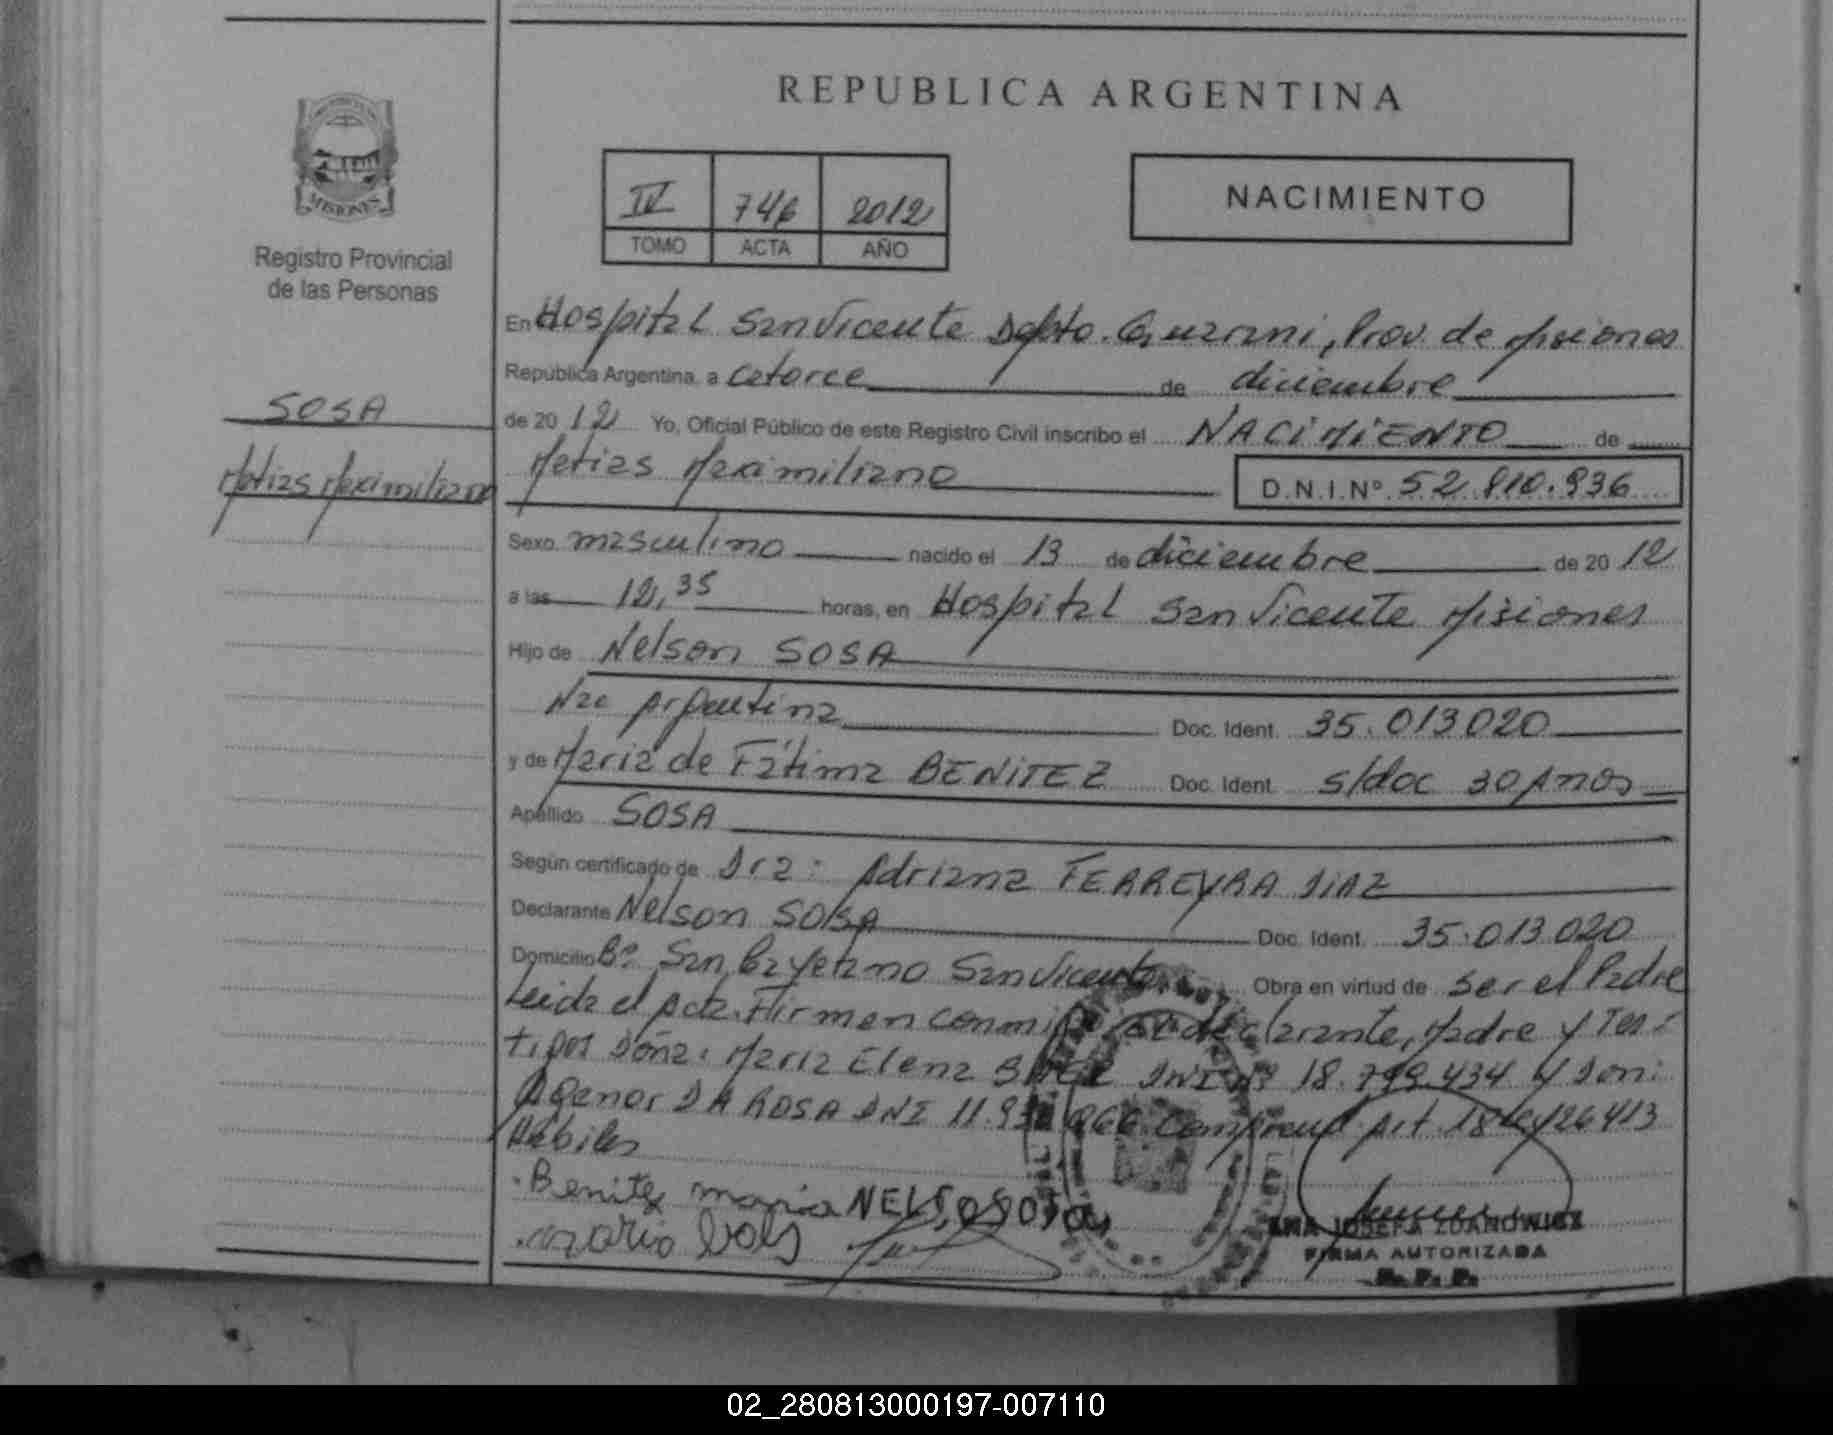 REPUBLICA ARGENTINA
MISIONES
Registro Provincial
de las Personas
IV 746 2012
TOMO ACTA AÑO
NACIMIENTO
En Hospital San Vicente Depto. Guarani, Prov. de Misiones
República Argentina, a Catorce de diciembre
SOSA
de 2012 Yo, Oficial Público de este Registro Civil inscribo el NACIMIENTO de
Matias Maximiliano
Matias Maximiliano D.N.I.Nº 52.810.936
Sexo masculino nacido el 13 de diciembre de 2012
a las 12,35 horas, en Hospital San Vicente Misiones
Hijo de Nelson SOSA
Nac Argentina Doc. Ident. 35.013020
y de Maria de Fátima BENITEZ Doc. Ident. s/doc 30 Anos
Apellido SOSA
Según certificado de Dra: Adriana FERREYRA DIAZ
Declarante Nelson SOSA Doc. Ident. 35.013.020
Domicilio Bº San Cayetano San Vicente Obra en virtud de ser el Padre
Leida el Acta. Firman conmigo el declarante, Madre y Tes-
tigos Doña: Maria Elena DNI Nº 18.799.434 y Don:
Agenor DA ROSA DNI Art.
Hábiles
Benitez maria NELSO SOSA
ANA JOSEFA ZDANOWICZ
FIRMA AUTORIZADA
R. P. P.
02_280813000197-007110